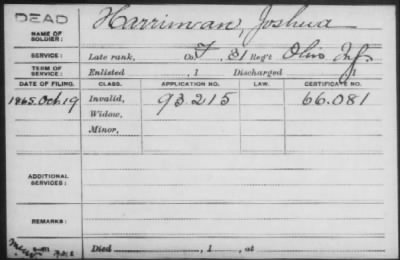 DEAD
NAME OF SOLDIER: Harriman, Joshua
SERVICE: Late rank, Co. F, 31 Reg't Ohio Inf.
TERM OF SERVICE: Enlisted , 1 Discharged , 1
DATE OF FILING. CLASS. APPLICATION NO. LAW. CERTIFICATE NO.
1865. Oct. 19 Invalid, 93.215 66.081
Widow,
Minor,
ADDITIONAL SERVICES:
REMARKS:
Died , 1 , at